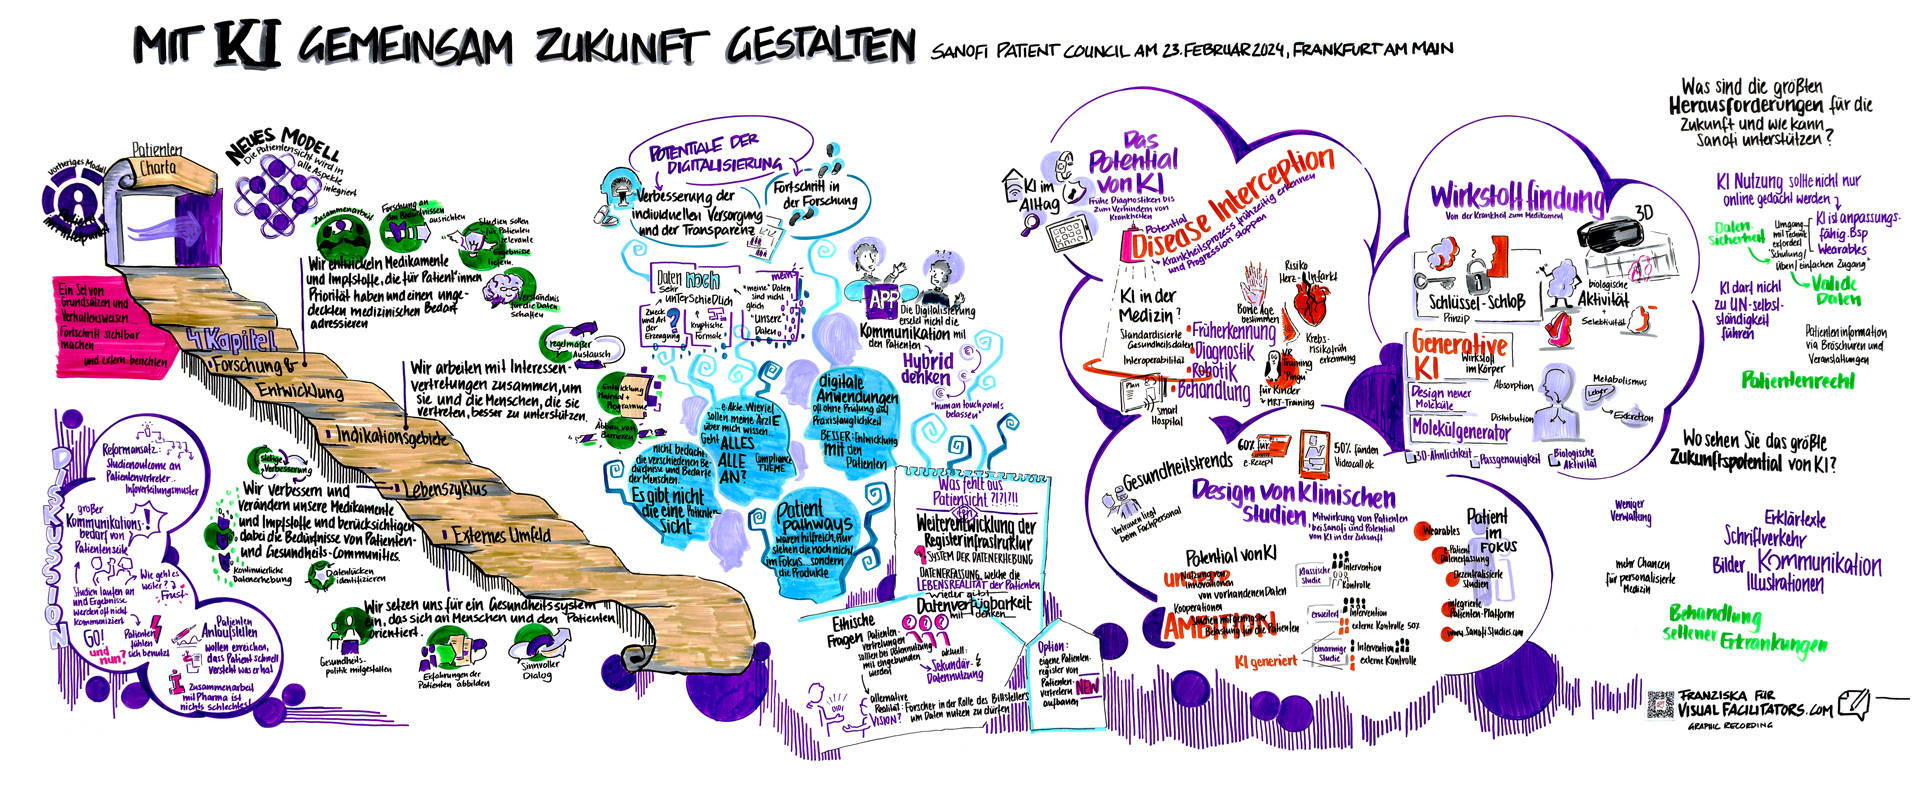 MIT KI GEMEINSAM ZUKUNFT GESTALTEN
SANOFI PATIENT COUNCIL AM 23. FEBRUAR 2024, FRANKFURT AM MAIN
vorheriges Modell
Patienten
Charta
NEUES MODELL
Die Patientensicht wird in
alle Aspekte
integriert
Ein Set von
Grundsätzen und
Verhaltensweisen
Fortschritt sichtbar
machen
und extern berichten
4 Kapitel
Forschung &
Entwicklung
Indikationsgebiete
Lebenszyklus
Externes Umfeld
Zusammenarbeit
Forschung an
den Bedürfnissen
ausrichten
Studien sollen
für Patienten
relevante
Ergebnisse
liefern.
Verständnis
für die Daten
schaffen
Wir entwickeln Medikamente
und Impfstoffe, die für Patient*innen
Priorität haben und einen unge-
deckten medizinischen Bedarf
adressieren
regelmäßer
Austausch
Wir arbeiten mit Interessen-
vertretungen zusammen, um
sie und die Menschen, die sie
vertreten, besser zu unterstützen.
Entwicklung
Material +
Programme
Abbau von
Barrieren
stetige
Verbesserung
Wir verbessern und
verändern unsere Medikamente
und Impfstoffe und berücksichtigen
dabei die Bedürfnisse von Patienten-
und Gesundheits-Communities.
Kontinuierliche
Datenerhebung
Datenlücken
identifizieren
Wir setzen uns für ein Gesundheitssystem
ein, das sich an Menschen und den Patienten
orientiert.
Gesundheits-
politik mitgestalten
Erfahrungen der
Patienten abbilden
Sinnvoller
Dialog
DISKUSSION
Reformansatz:
Studienoutcome an
Patientenvertreter...
Infoverteilungsmuster
großer
Kommunikations-
bedarf von
Patientenseite
!
Wie geht es
weiter?
Frust
Studien laufen an
und Ergebnisse
werden oft nicht
kommuniziert
GO!
und
nun?
Patienten
fühlen
sich benutzt
Patienten
Anlaufstellen
wollen erreichen,
dass Patient schnell
versteht was er hat
Zusammenarbeit
mit Pharma ist
nichts schlechtes
POTENTIALE DER
DIGITALISIERUNG
Verbesserung der
individuellen Versorgung
und der Transparenz
Fortschritt in
der Forschung
Daten noch
sehr
unterschiedlich
Zweck
und Art
der
Erzeugung
?
kryptische
Formate
meins
"meine" Daten
sind nicht
gleich
"unsere"
Daten
APP
Die Digitalisierung
ersetzt nicht die
Kommunikation mit
den Patienten
Hybrid
denken
"human touch points
belassen"
digitale
Anwendungen
oft ohne Prüfung auf
Praxistauglichkeit
BESSER: Entwicklung
mit den
Patienten
...e-Akte. Wieviel
sollen meine Ärzte
über mich wissen...
Geht ALLES
ALLE
AN?
Compliance
THEME
nicht bedacht:
die verschiedenen Be-
dürfnisse und Bedarfe
der Menschen.
Es gibt nicht
die eine Patienten-
Sicht
Patient
pathways
waren hilfreich, nur
stehen die noch nicht
im Fokus... sondern
die Produkte
Was fehlt aus
Patientsicht ?!?!!!
Weiterentwicklung der
Registerinfrastruktur
? SYSTEM DER DATENERHEBUNG
DATENERFASSUNG, welche die
LEBENSREALITÄT der Patienten
wieder gibt
Datenverfügbarkeit
mit denken
Ethische
Fragen
Patienten-
vertretungen
sollten bei Datennutzung
mit eingebunden
werden
aktuell:
Sekundär-
Datennutzung
alternative
Realität: Forscher in der Rolle des Bittstellers
VISION?
um Daten nutzen zu dürfen
Option:
eigene Patienten-
register von
Patienten-
vertretern
aufbauen
NEW
KI im
Alltag
Das
Potential
von KI
Frühe Diagnostiken bis
zum Verhindern von
Krankheiten
Potential
Disease Interception
Krankheitsprozess frühzeitig erkennen
und Progression stoppen
KI in der
Medizin?
Standardisierte
Gesundheitsdaten
Interoperabilität
Früherkennung
Diagnostik
Robotik
Behandlung
Smart
Hospital
Plan
Bone Age
bestimmen
Risiko
Herz-Infarkt
Krebs-
risiko früh
erkennung
VR
Training
"Pingu"
für Kinder
MRT-Training
Gesundheitstrends
60% für
e-Rezept
50% fänden
Videocall ok
Vertrauen liegt
beim Fachpersonal
Design von Klinischen
Studien
Mitwirkung von Patienten
bei Sanofi und Potential
von KI in der Zukunft
Potential von KI
unsere
Nutzung von
Innovationen
von vorhandenen Daten
Kooperationen
AMBITION
Studien mit geringster
Belastung für die Patienten
KI generiert
Klassische
Studie
Intervention
Kontrolle
erweitert
Intervention
externe Kontrolle 50%
einarmige
Studie
Intervention
externe Kontrolle
Patient
im
FOKUS
Wearables
e-Patient
Datenerfassung
Dezentralisierte
Studien
integrierte
Patienten-Platform
www.SanofiStudies.com
Wirkstofffindung
Von der Krankheit zum Medikament
3D
Schlüssel-Schloß
Prinzip
biologische
Aktivität
+
Selektivität
Generative
KI
Wirkstoff
im Körper
Design neuer
Moleküle
Molekülgenerator
3D-Ähnlichkeit
Passgenauigkeit
Biologische
Aktivität
Absorption
Distribution
Metabolismus
Leber
Exkretion
Was sind die größten
Herausforderungen für die
Zukunft und wie kann
Sanofi unterstützen?
KI Nutzung sollte nicht nur
online gedacht werden
Daten-
sicherheit
Umgang
mit Technik
erfordert
Schulung/
Üben/einfachen Zugang
KI ist anpassungs-
fähig. Bsp
Wearables
Valide
Daten
KI darf nicht
zu UN-selbst-
ständigkeit
führen
Patienteninformation
via Broschüren und
Veranstaltungen
Patientenrecht
Wo sehen Sie das größte
Zukunftspotential von KI?
Weniger
Verwaltung
Erklärtexte
Schriftverkehr
Bilder Kommunikation
Illustrationen
mehr Chancen
für personalisierte
Medizin
Behandlung
seltener Erkrankungen
FRANZISKA FÜR
VISUALFACILITATORS.COM
GRAPHIC RECORDING